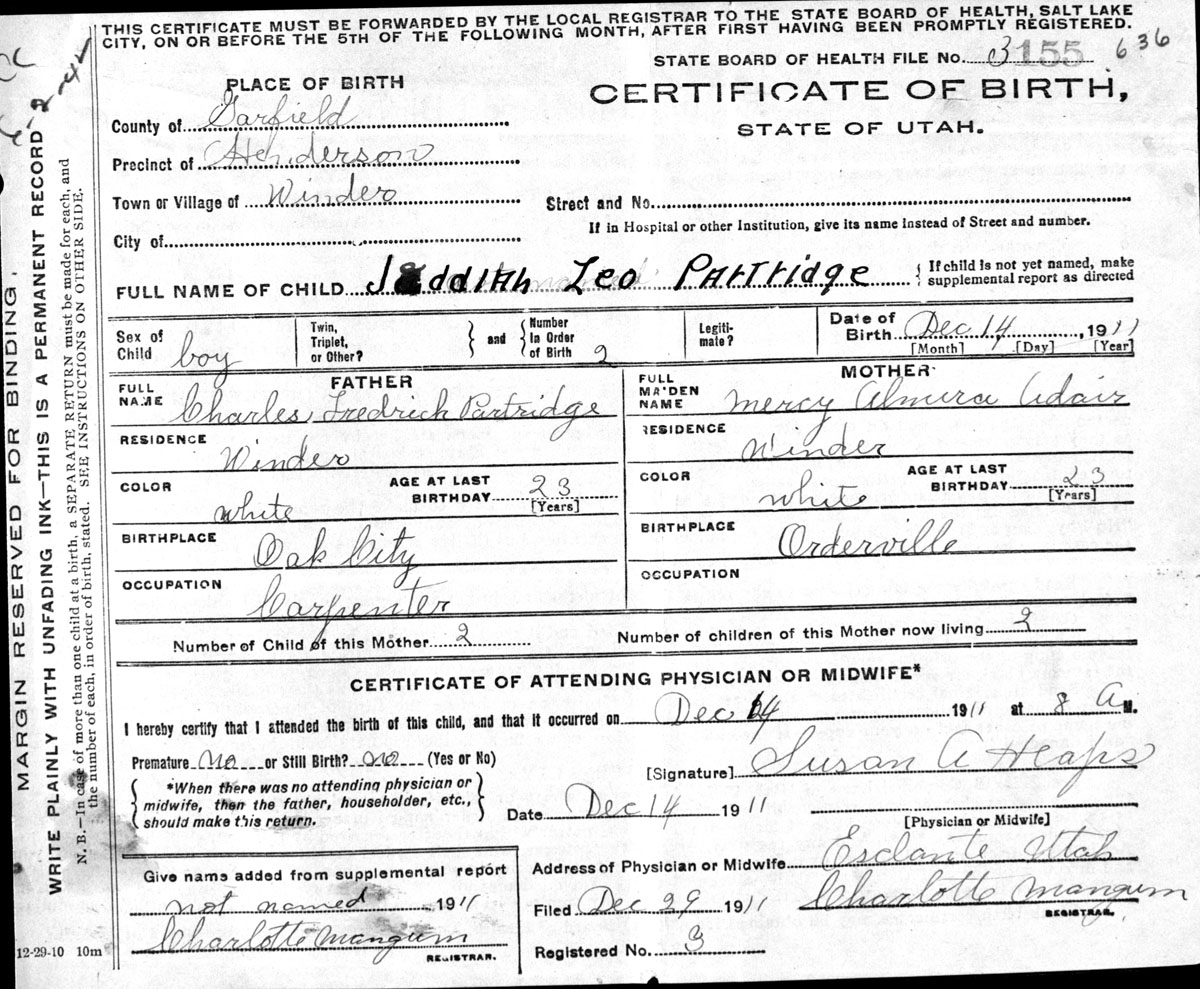 THIS CERTIFICATE MUST BE FORWARDED BY THE LOCAL REGISTRAR TO THE STATE BOARD OF HEALTH, SALT LAKE
CITY, ON OR BEFORE THE 5TH OF THE FOLLOWING MONTH, AFTER FIRST HAVING BEEN PROMPTLY REGISTERED.
STATE BOARD OF HEALTH FILE No. 3155 636
PLACE OF BIRTH
CERTIFICATE OF BIRTH,
STATE OF UTAH.
County of Garfield
Precinct of Henderson
Town or Village of Winder
Street and No.
If in Hospital or other Institution, give its name instead of Street and number.
City of
FULL NAME OF CHILD Jeddiah Leo Partridge
{ If child is not yet named, make
supplemental report as directed
Sex of Child boy
Twin, Triplet, or Other? } and { Number In Order of Birth 2
Legiti-mate?
Date of Birth Dec 14, 1911
[Month] [Day] [Year]
FATHER
FULL NAME Charles Fredrick Partridge
RESIDENCE Winder
COLOR white
AGE AT LAST BIRTHDAY 23 [Years]
BIRTHPLACE Oak City
OCCUPATION Carpenter
MOTHER
FULL MAIDEN NAME Mercy Almira Adair
RESIDENCE Winder
COLOR white
AGE AT LAST BIRTHDAY 23 [Years]
BIRTHPLACE Orderville
OCCUPATION
Number of Child of this Mother 2
Number of children of this Mother now living 2
CERTIFICATE OF ATTENDING PHYSICIAN OR MIDWIFE*
I hereby certify that I attended the birth of this child, and that it occurred on Dec 14 1911 at 8 A M.
Premature no or Still Birth? no (Yes or No)
{ *When there was no attending physician or
midwife, then the father, householder, etc.,
should make this return. }
[Signature] Susan A Heaps
Date Dec 14 1911
[Physician or Midwife]
Give name added from supplemental report
not named 1911
Charlotte Mangum
REGISTRAR.
Address of Physician or Midwife Esclante Utah
Filed Dec 29 1911 Charlotte Mangum
REGISTRAR.
Registered No. 3
12-29-10 10m
MARGIN RESERVED FOR BINDING.
WRITE PLAINLY WITH UNFADING INK—THIS IS A PERMANENT RECORD
N. B.—In case of more than one child at a birth, a SEPARATE RETURN must be made for each, and
the number of each, in order of birth, stated. SEE INSTRUCTIONS ON OTHER SIDE.